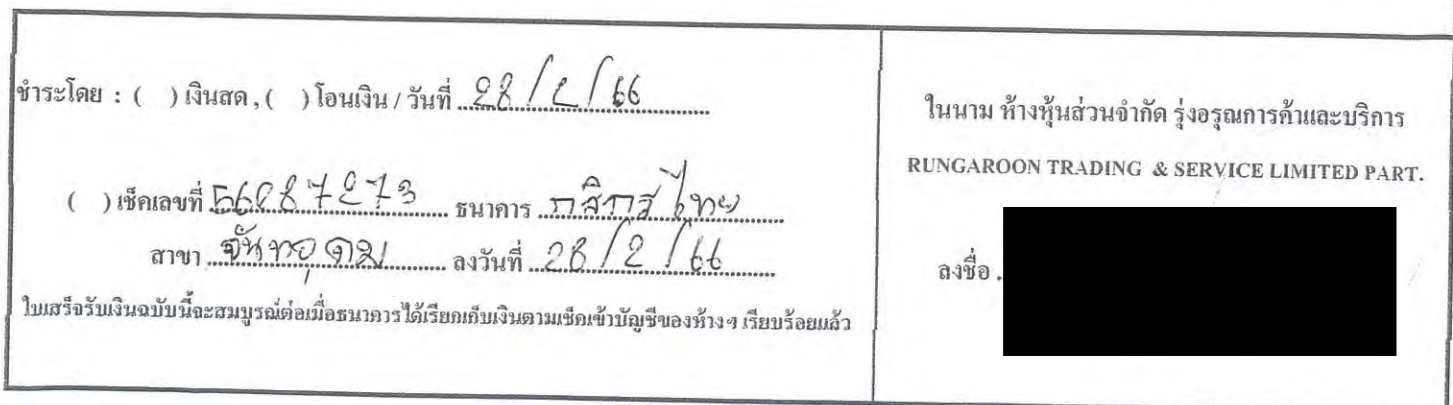 ชำระโดย : ( ) เงินสด , ( ) โอนเงิน / วันที่ 28/2/66
( ) เช็คเลขที่ 56287273 ธนาคาร กสิกรไทย
สาขา จันทอุดม ลงวันที่ 28/2/66
ใบเสร็จรับเงินฉบับนี้จะสมบูรณ์ต่อเมื่อธนาคารได้เรียกเก็บเงินตามเช็คเข้าบัญชีของห้างฯ เรียบร้อยแล้ว
ในนาม ห้างหุ้นส่วนจำกัด รุ่งอรุณการค้าและบริการ
RUNGAROON TRADING & SERVICE LIMITED PART.
ลงชื่อ .